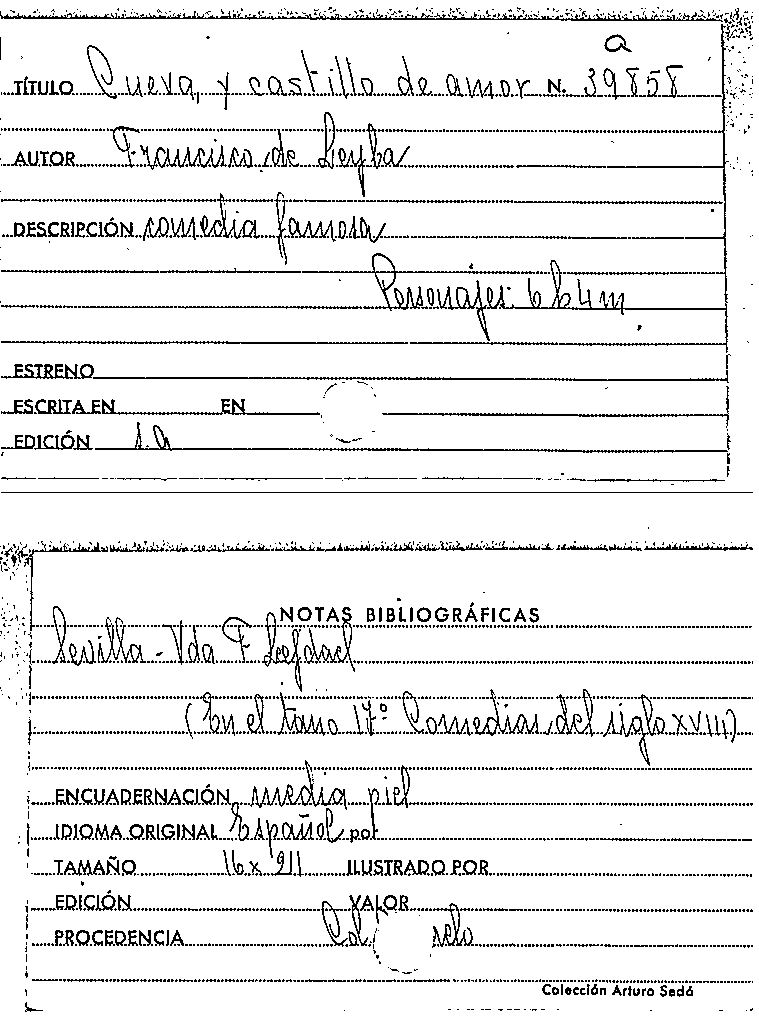 a
TÍTULO Cueva, y castillo de amor N. 39858
AUTOR Francisco de Leyba
DESCRIPCIÓN comedia famosa
Personajes: 6 h 4 m.
ESTRENO
ESCRITA EN EN
EDICIÓN s.a
NOTAS BIBLIOGRÁFICAS
Sevilla - Vda F Leefdael
(En el tomo 17º Comedias del siglo XVIII)
ENCUADERNACIÓN media piel
IDIOMA ORIGINAL Español por
TAMAÑO 16 x ILUSTRADO POR
EDICIÓN VALOR
PROCEDENCIA Col.
Colección Arturo Sedó